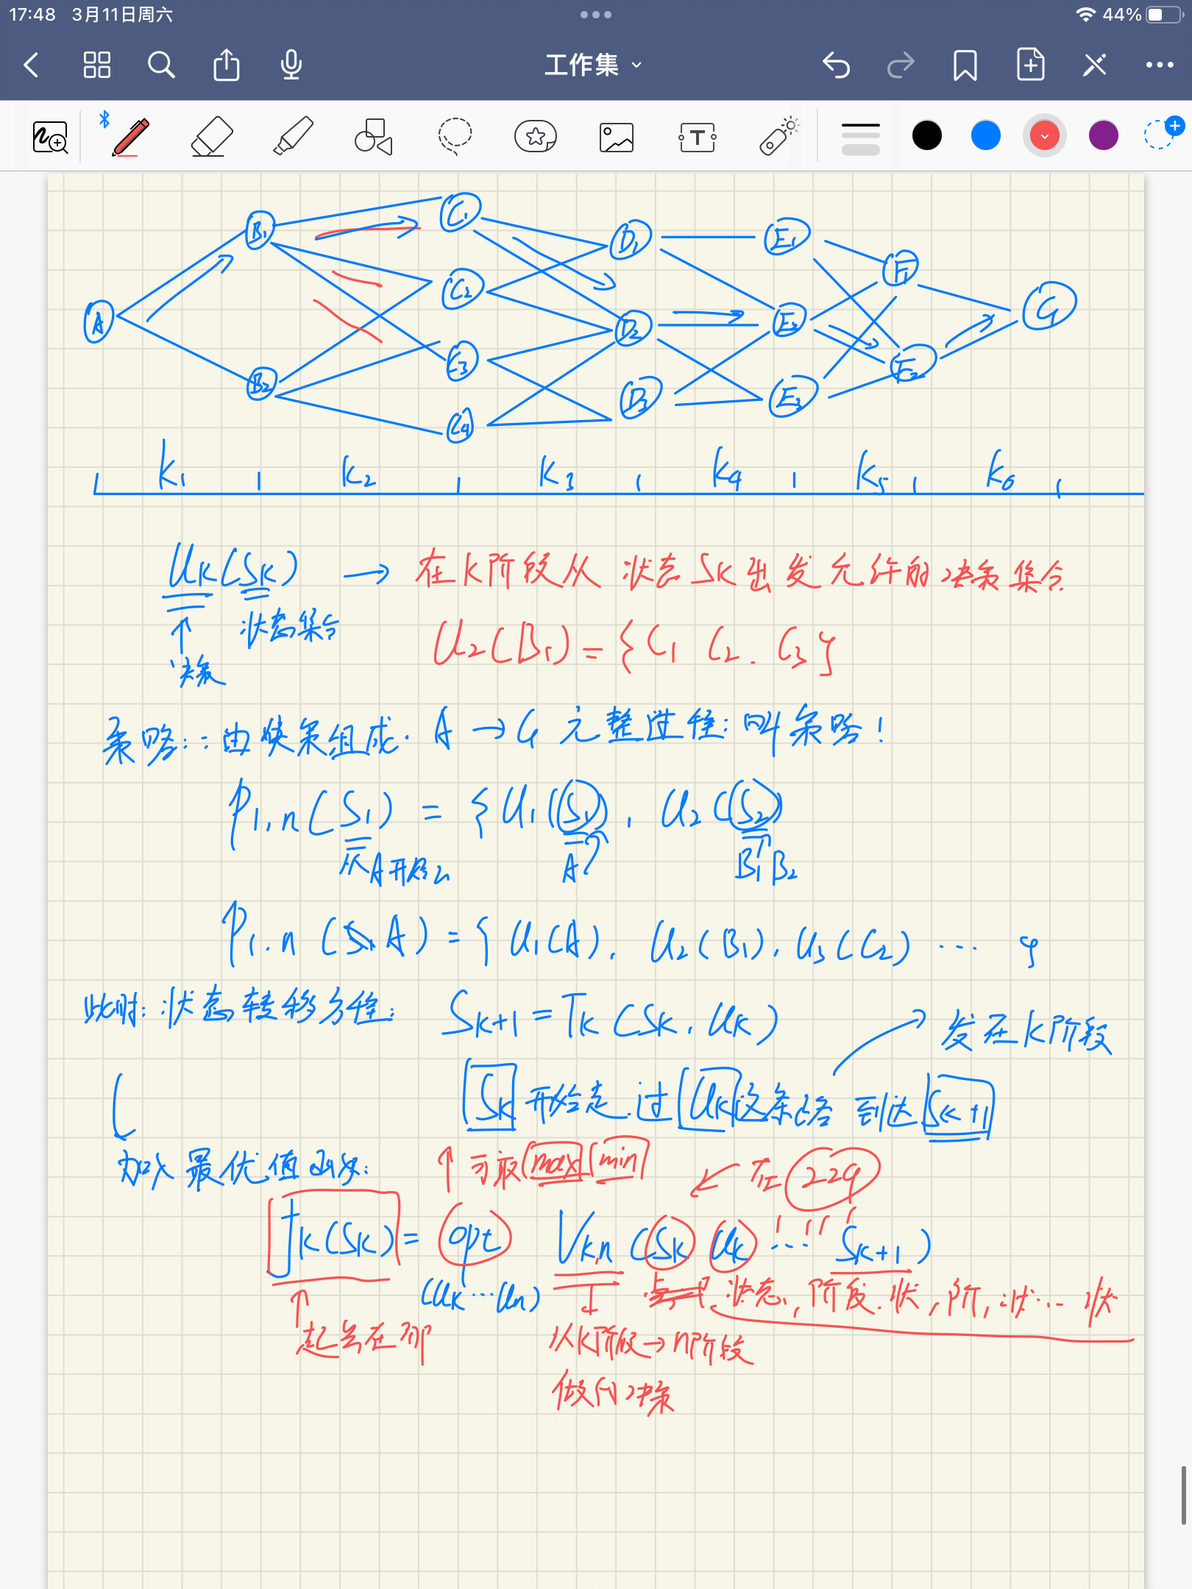 17:48 3月11日周六
44%
工作集
A B₁ B₂ C₁ C₂ C₃ C₄ D₁ D₂ D₃ E₁ E₂ E₃ F₁ F₂ G
K₁ K₂ K₃ K₄ K₅ K₆
Uk(Sk) → 在K阶段从 状态Sk出发允许的决策集合
状态集合
决策
U₂(B₁) = {C₁ C₂. C₃}
策略:: 由决策组成. A → G 完整过程:叫策略!
P₁,n(S₁) = {U₁(S₁), U₂(S₂)
从A开始 A B₁ B₂
P₁.n (S₁A) = { U₁(A), U₂(B₁), U₃(C₂) ... }
此时:状态转移方程: Sk+1 = Tk (Sk, Uk)
发在K阶段
Sk 开始走.过 Uk 这条路 到达 Sk+1
加入最优值函数: 可取 max min 在 229
fk(Sk) = opt Vk,n (Sk Uk ... Sk+1)
(Uk...Un) 状态,阶段.状,阶,状... 状
起点在那 从K阶段→n阶段
做的决策